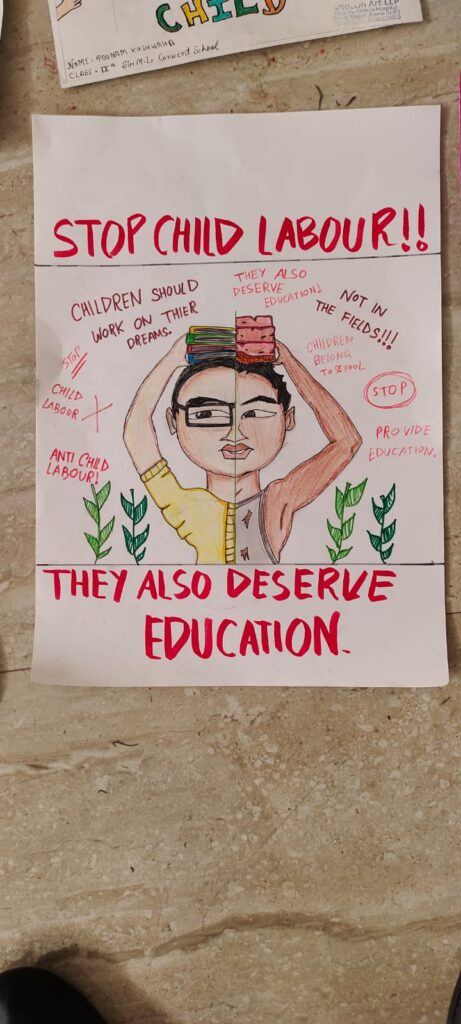 CHILD
NAME - POONAM KUSHWAHA
CLASS - IXth Sir M.L. Convent School
STOP CHILD LABOUR!!
CHILDREN SHOULD
WORK ON THIER
DREAMS.
THEY ALSO
DESERVE
EDUCATION!
NOT IN
THE FIELDS!!!
STOP
CHILD
LABOUR
ANTI CHILD
LABOUR!
CHILDREN
BELONG
TO SCHOOL
STOP
PROVIDE
EDUCATION.
THEY ALSO DESERVE
EDUCATION.